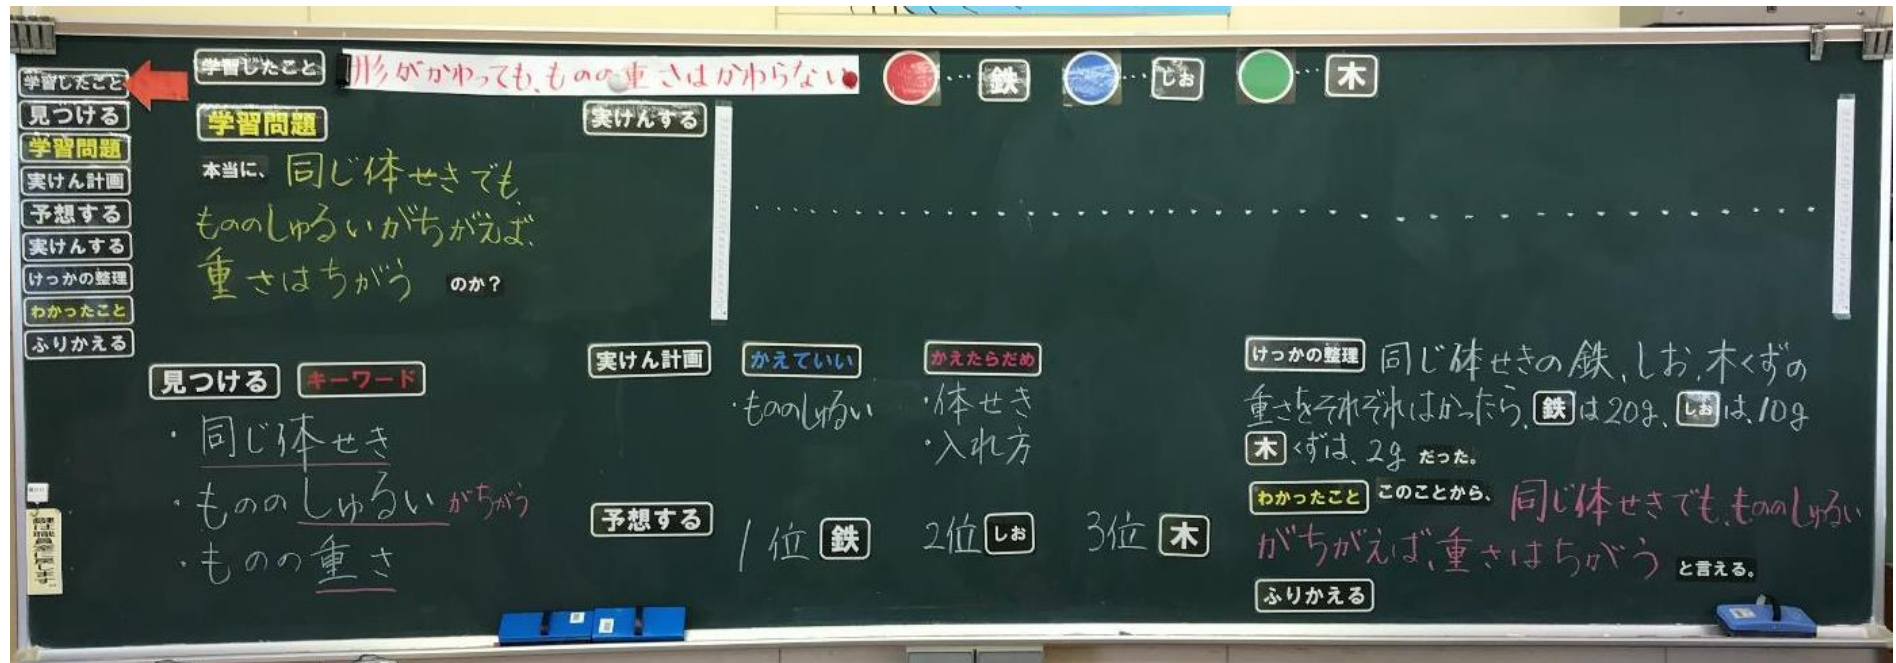 学習したこと
見つける
学習問題
実けん計画
予想する
実けんする
けっかの整理
わかったこと
ふりかえる
学習したこと 形がかわっても、ものの重さはかわらない
…鉄 …しお …木
学習問題
本当に、同じ体せきでも、
もののしゅるいがちがえば、
重さはちがう のか?
見つける キーワード
・同じ体せき
・もののしゅるいがちがう
・ものの重さ
実けんする
実けん計画 かえていい かえたらだめ
・もののしゅるい ・体せき
・入れ方
予想する 1位 鉄 2位 しお 3位 木
けっかの整理 同じ体せきの鉄、しお、木くずの
重さをそれぞれはかったら、鉄は20g、しおは、10g
木くずは、2g だった。
わかったこと このことから、同じ体せきでも、もののしゅるい
がちがえば、重さはちがう と言える。
ふりかえる